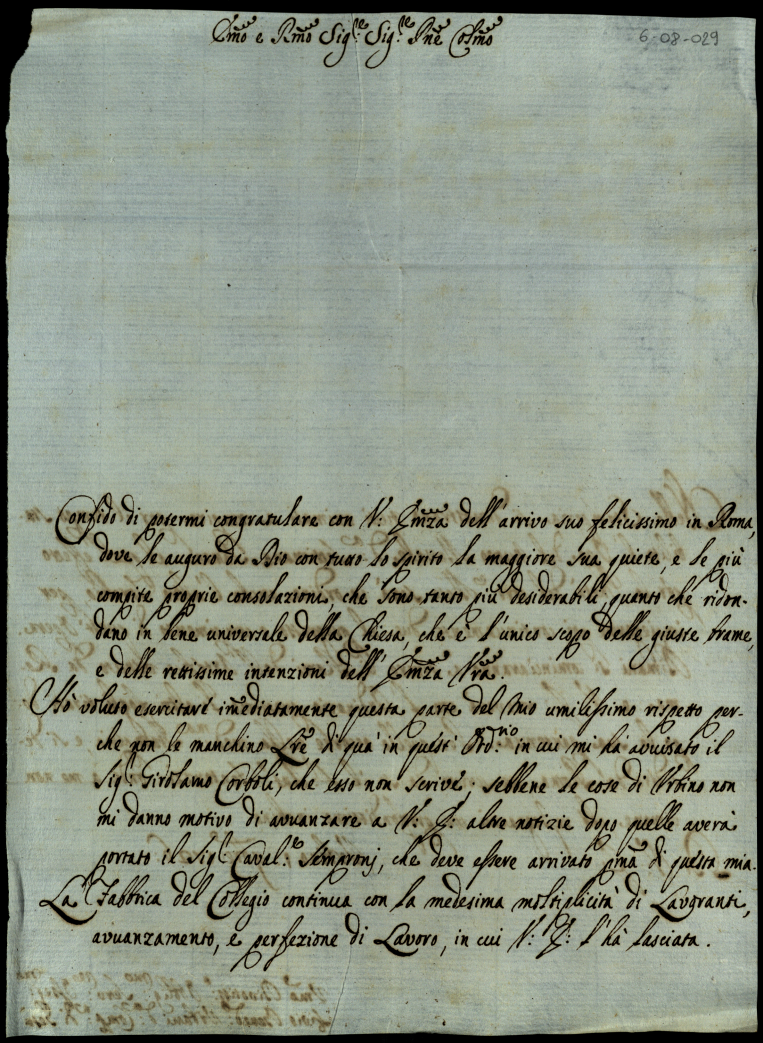 Emo e Rmo Sig.re Sig.re Pne Colmo
6-08-029
Confido di potermi congratulare con V: Emza dell'arrivo suo felicissimo in Roma,
dove le auguro da Dio con tutto lo spirito la maggiore sua quiete, e le più
compite proprie consolazioni, che sono tanto più desiderabili, quanto che ridon-
dano in bene universale della Chiesa, che è l'unico scopo delle giuste brame,
e delle rettissime intenzioni dell'Emza Vra.
Hò voluto esercitare imediatamente questa parte del mio umilissimo rispetto per-
che non le manchino Lre di quà in quest'Ord:rio in cui mi hà avvisato il
Sig.r Girolamo Corboli, che esso non scrive; sebbene le cose di Urbino non
mi danno motivo di avvanzare a V: E: altre notizie dopo quelle averà
portato il Sig.r Caval:e Sempronj, che deve essere arrivato pma di questa mia.
La Fabbrica del Collegio continua con la medesima moltiplicità di Lavoranti,
avvanzamento, e perfezione di Lavoro, in cui V: E: l'hà lasciata.